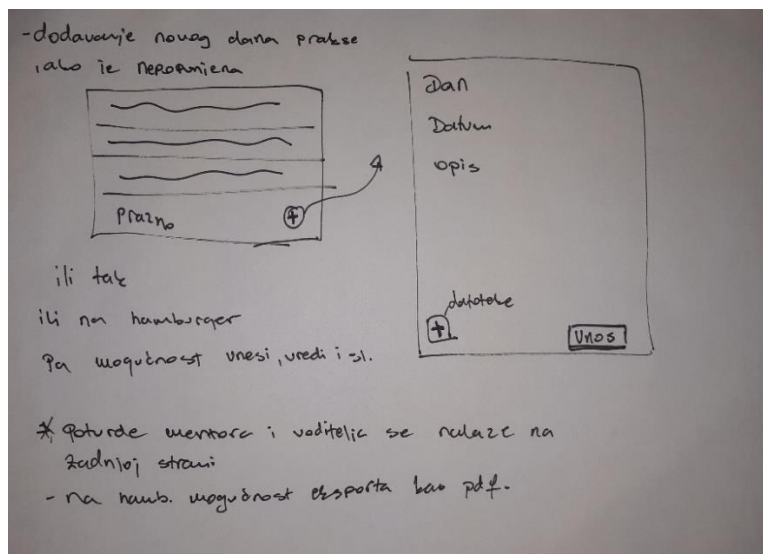 -dodavanje novog dana prakse
, ako je nepopunjena
Prazno
+
Dan
Datum
opis
datoteke
+
Unos
ili tak
ili na hamburger
Pa mogućnost unesi, uredi i sl.
* Potvrde mentora i voditelja se nalaze na
zadnjoj strani
- na hamb. mogućnost eksporta kao pdf.